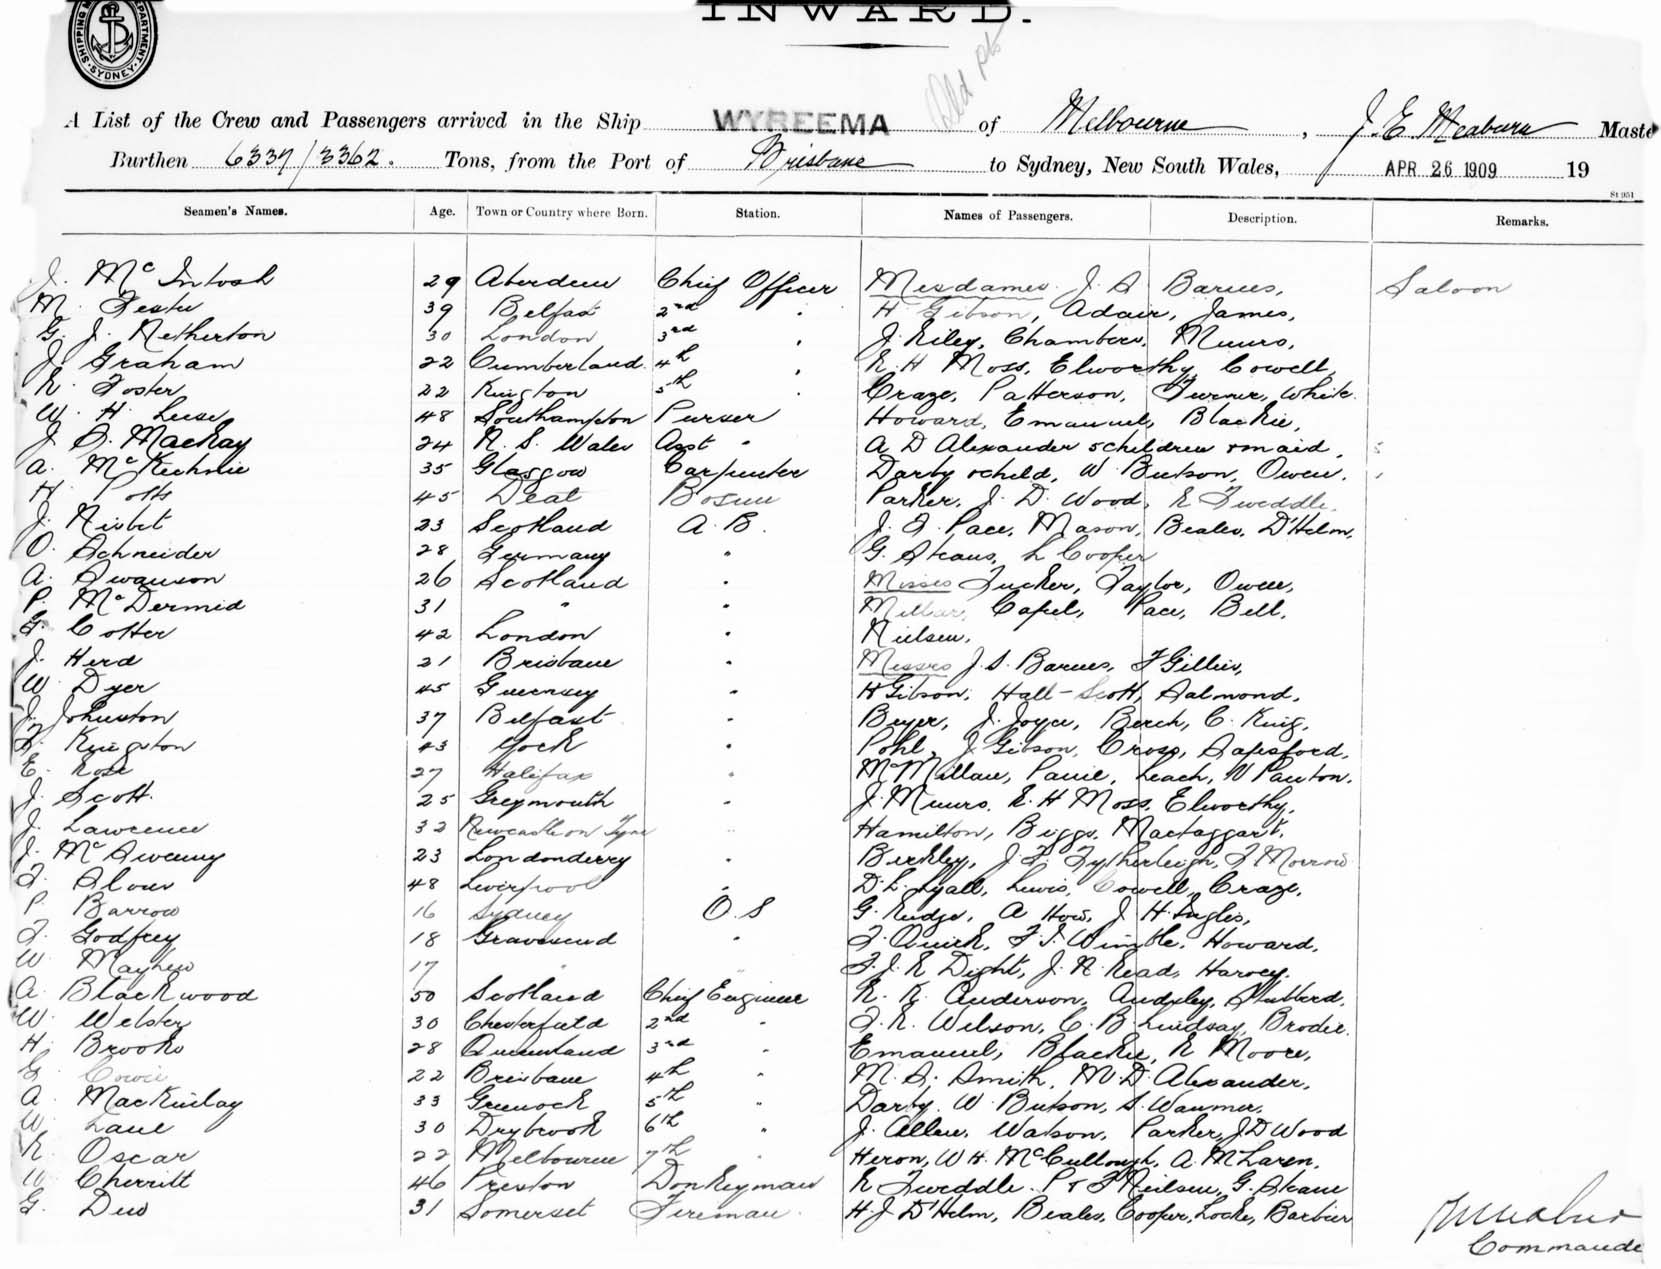 SHIPPING DEPARTMENT. SYDNEY.
INWARD.
Old pts
A List of the Crew and Passengers arrived in the Ship WYREEMA of Melbourne, J. E. Meaburn Maste
Burthen 6337/3362. Tons, from the Port of Brisbane to Sydney, New South Wales, APR 26 1909 19
St 951
Seamen's Names. Age. Town or Country where Born. Station. Names of Passengers. Description. Remarks.
J. McIntosh 29 Aberdeen Chief Officer Mesdames J. S Barnes, Saloon
M. Fester 39 Belfast 2nd " H Gibson, Adair, James,
G. J. Netherton 30 London 3rd " J. Riley, Chambers, Munro,
J. Graham 22 Cumberland 4th " R. H Moss, Elworthy, Cowell,
R. Foster 22 Kington 5th " Craze, Patterson, Turner, White.
W. H. Luse 48 Southampton Purser Howard, Emanuel, Blackie,
J. S. MacKay 24 N. S. Wales Asst " A D Alexander 5 children & maid,
A. McKechnie 35 Glasgow Carpenter Darby & child, W Butson, Owen,
H. Potts 45 Deal Bosun Parker, J. D. Wood, R Tweddle,
J. Nisbet 23 Scotland A. B. J. F. Pace, Mason, Beales, D'Helm,
O. Schneider 28 Germany " G. Skans, L Cooper
A. Swanson 26 Scotland " Misses Tucker, Taylor, Owen,
P. McDermid 31 " " Millar, Capel, Pace, Bell,
G. Cotter 42 London " Nielsen,
J. Herd 21 Brisbane " Messrs J. S. Barnes, F Gillies,
W. Dyer 45 Guernsey " H Gibson, Hall-Scott, Salmond,
J. Johnston 37 Belfast " Beyer, J. Joyce, Berch, C. King,
Kingston 43 York " Pohl, J Gibson, Cross, Sapsford,
E. Rose 27 Halifax " McMillan, Paine, Leach, W Panton,
J. Scott. 25 Greymouth " J. Munro, R. H Moss, Elworthy,
J. Lawrence 32 Newcastle on Tyne " Hamilton, Biggs, Mactaggart,
J. McSweeny 23 Londonderry " Berkley, J. F. Fytherleigh, F Morrow
F. Sloan 48 Liverpool " D. L. Lyall, Lewis, Cowell, Craze,
P. Barrow 16 Sydney O. S G. Rudge, A How, J H. Ingles,
F. Godfrey 18 Gravesend " F. Quirk, F. S. Wimble, Howard,
W. Mayhew 17 " F. J. R Dight, J. N. Read, Harvey,
A. Blackwood 50 Scotland Chief Engineer R. K. Anderson, Audsley, Stubberd,
W. Webster 30 Chesterfield 2nd " F. R. Wilson, C. B. Lindsay, Brodie.
H. Brooks 28 Queensland 3rd " Emanuel, Blackie, R Moore,
G. Cowie 22 Brisbane 4th " M. S. Smith, M. D. Alexander,
A. MacKinlay 33 Greenock 5th " Darby, W. Butson, S. Wanmer,
W. Lane 30 Drybrook 6th " J. Allen, Watson, Parker, J D Wood
R. Oscar 22 Melbourne 7th " Heron, W H. McCullough, A. McLaren,
W. Cherritt 46 Preston Donkeyman R Tweddle. P & F Neilsen, G. Skans
G. Dew 31 Somerset Fireman. H. J D'Helm, Beales, Cooper, Locke, Barbier
Commande